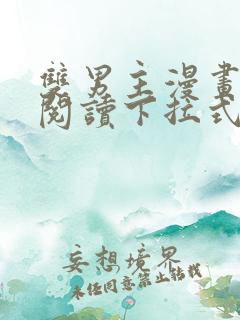 雙男主漫畫
閱讀下拉式
妄想境界
未經同意禁止轉載